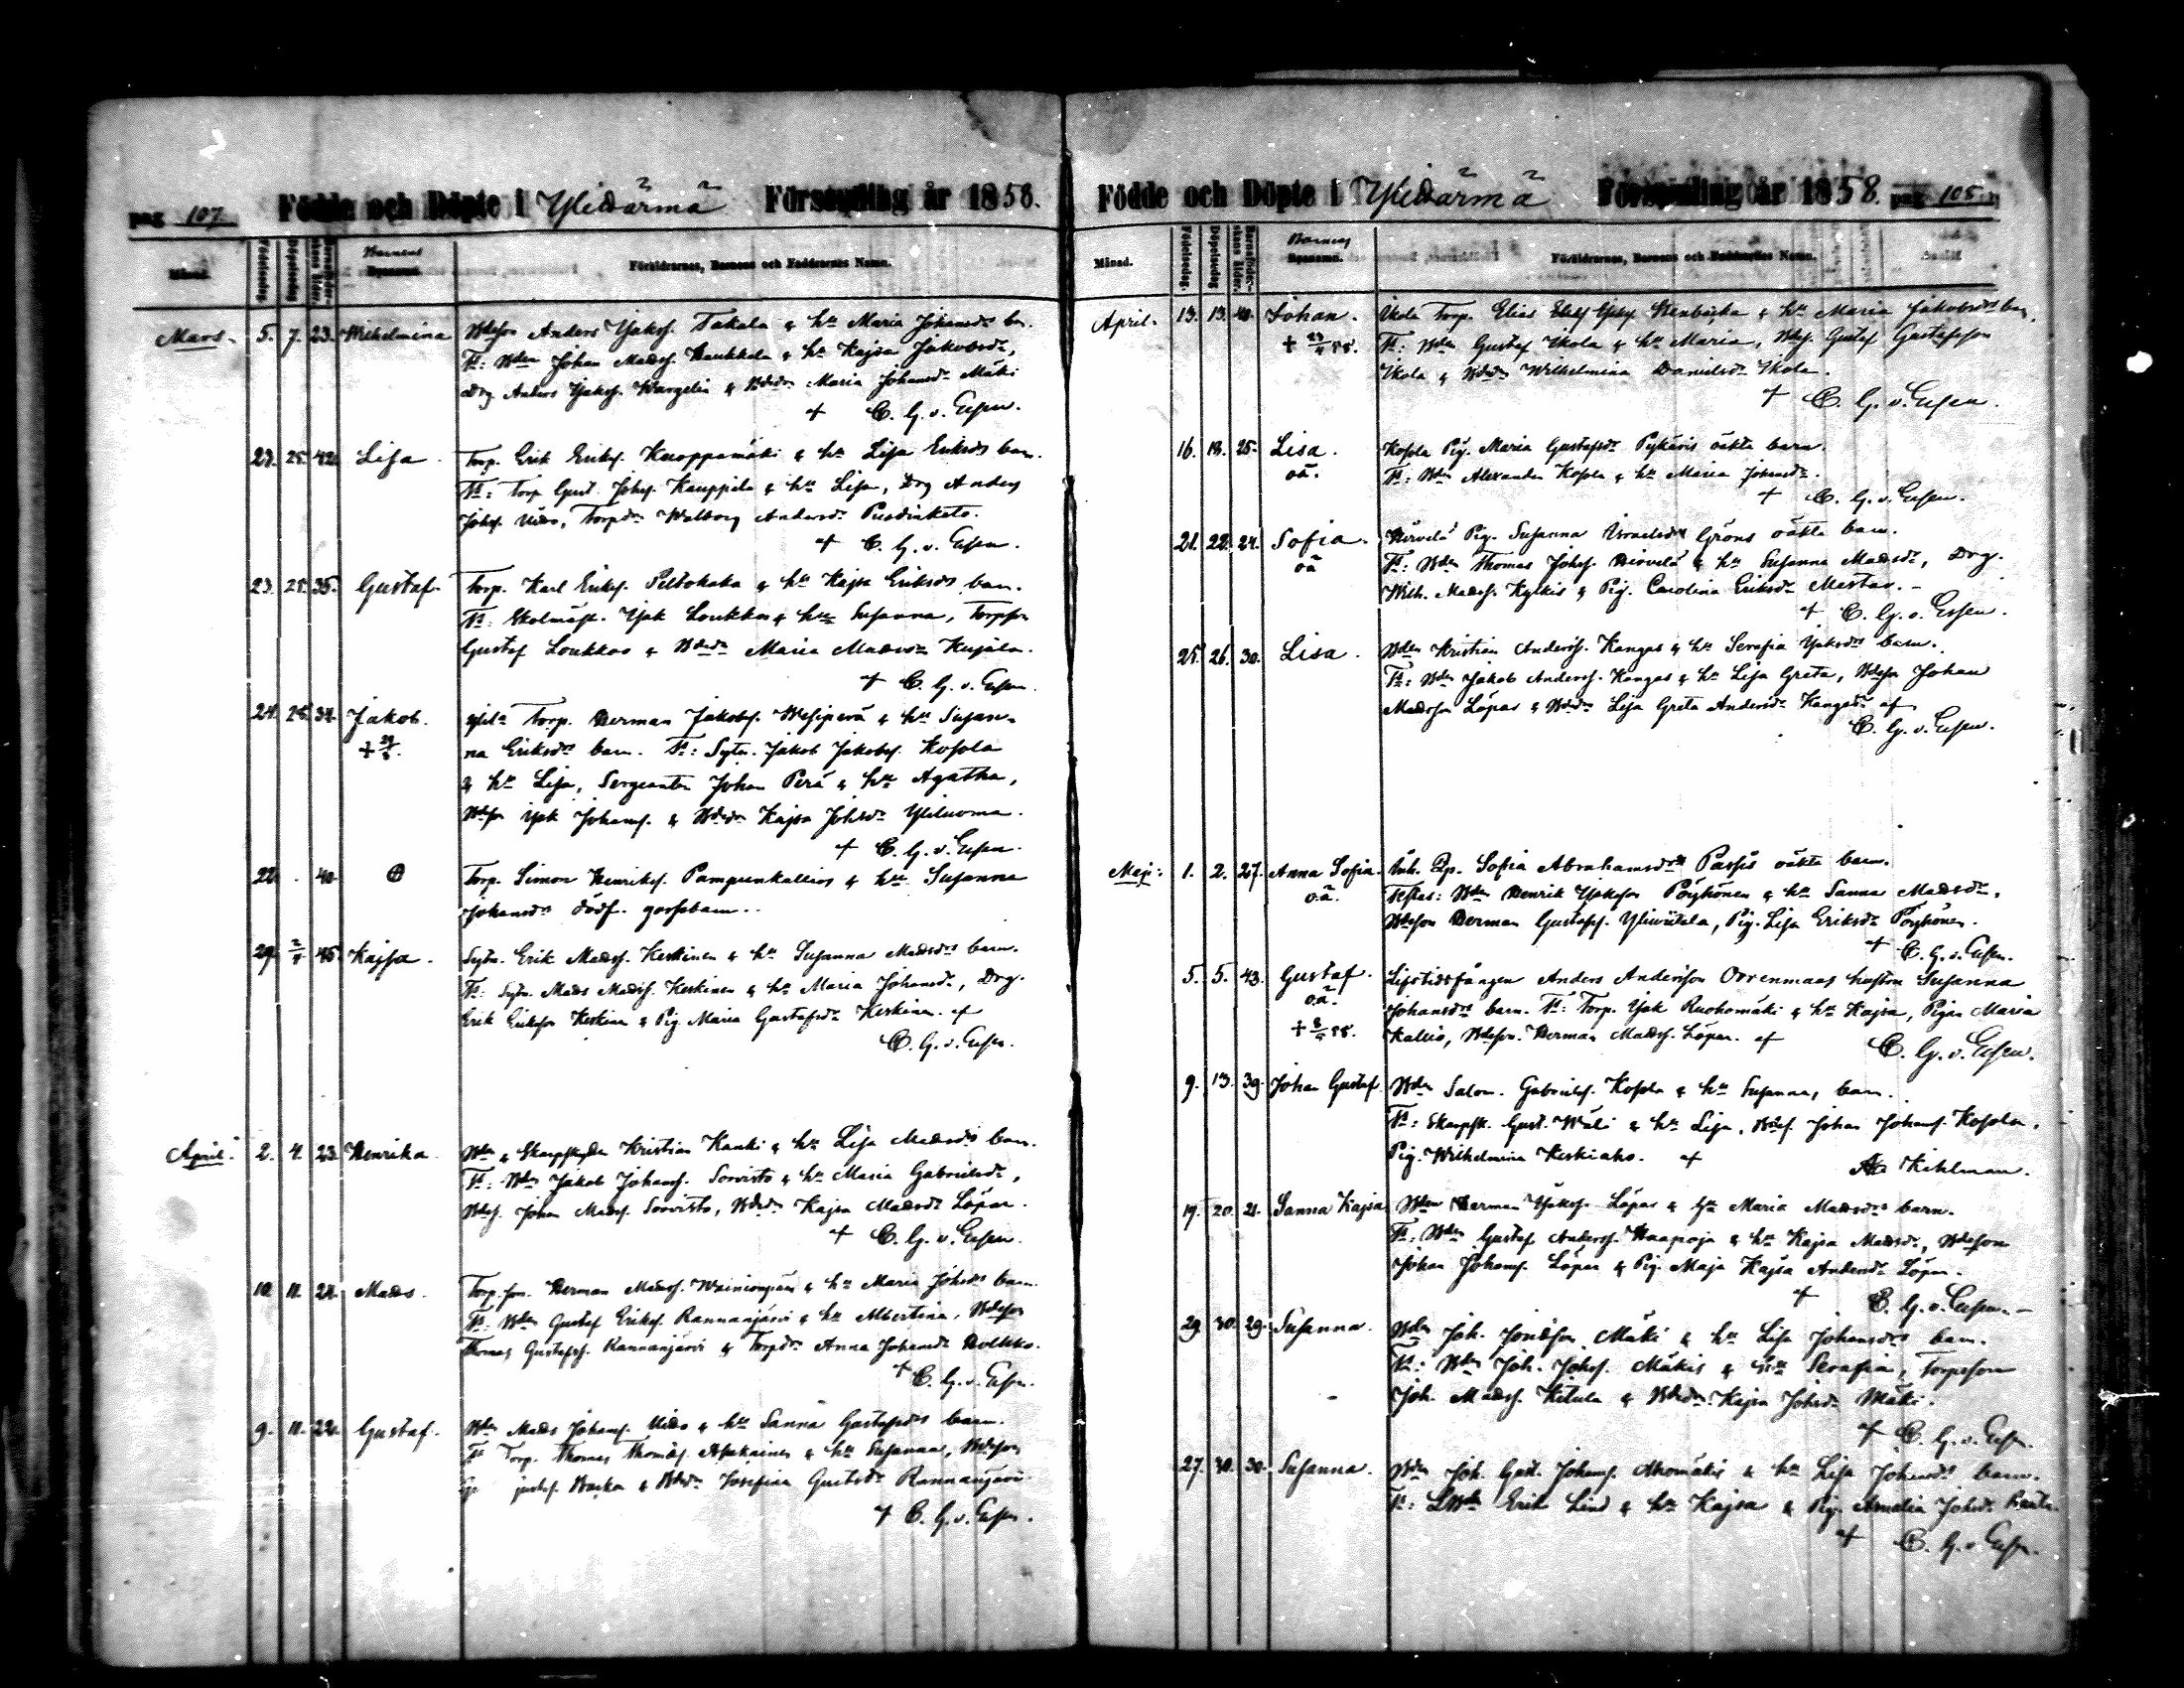 pag 107. Födde och Döpte i Ylihärmä Församling år 1858.
Månad. Födelsedag. Döpelsedag Barnaföderskans ålder. Barnens Byanamn. Föräldrarnes, Barnens och Faddrarnes Namn.
Mars. 5. 7. 23. Wilhelmina Bdeson Anders Jakss. Takala & hu Maria Johansds bn.
Ft: Bden Johan Madss. Haukkala & hu Kajsa Jakobsdr,
Drg Anders Jakss. Wargelin & Bdedn Maria Johansdr Mäki
+ C. G. v. Essen.
23. 25. 42. Lisa. Torp. Erik Erikss. Knoppamäki & hu Lisa Eriksds barn.
Ft: Torp Gust. Johss. Kauppila & hu Lisa, Drg Anders
Johss. Uido, Torpdr Walborg Andersdr
+ C. G. v. Essen.
23. 25. 35. Gustaf. Torp. Karl Erikss. Peltohaka & hu Kajsa Eriksds barn.
Ft: Skolmäst. Jak Loukko & hu Susanna, Torpson
Gustaf Loukko & Bdedr Maria Madsdr Kujala.
+ C. G. v. Essen.
24. 25. 34. Jakob. Torp. Herman Jakobss. Wesiperä & hu Susan-
na Eriksdrs barn. Ft: Sytn. Jakob Jakobss. Kosola
& hu Lisa, Sergeanten Johan Perä & hu Agatha,
Bdeson Jak Johanss. & Bdedr Kajsa Johsdr Yliluoma.
+ C. G. v. Essen.
22. . 40. ⊕ Torp. Simon Henrikss. Pampunkallios & hu Susanna
Johansds dödf. gossebarn..
29. 2/4 45. Kajsa. Sytn. Erik Madss. Keskinen & hu Susanna Madsdrs barn.
Ft: Sytn. Mads Madss. Keskinen & hu Maria Johansdr, Drg.
Erik Erikson Keskinen & Pig Maria Gustafsdr Keskinen. af
C. G. v. Essen.
April. 2. 4. 23. Henrika. Bden & Skarpskytten Kristian Kanki & hu Lisa Madsds barn.
Ft: Bden Jakob Johanss. Sorvisto & hu Maria Gabrielsdr,
Bdes. Johan Madss. Sorvisto, Bdedr Kajsa Madsdr Löpar.
+ C. G. v. Essen.
10. 11. 24. Mads. Torp.son. Herman Madss. Wainionpää & hu Maria Johsds barn.
Ft: Bden Gustaf Erikss. Rannanjärvi & hu Albertina, Bdeson
Thomas Gustafss. Rannanjärvi & Torpdr Anna Johansdr Holkko.
+ C. G. v. Essen.
9. 11. 22. Gustaf. Bden Mads Johanss. Uido & hu Sanna Gustafsds barn.
Ft Torp. Thomas Thomass. Asukainen & hu Susanna, Bdeson
Backa & Bdedr Josefina Gustsdr Rannanjärvi
+ C. G. v. Essen.
Födde och Döpte i Ylihärmä Församling år 1858. pag 105
Månad. Födelsedag. Döpelsedag Barnaföderskans ålder. Barnens Byanamn. Föräldrarnes, Barnens och Faddrarnes Namn.
April. 13. 13. 40. Johan. Ikola Torp. Elias Stenbacka & hu Maria Jakobsdrs barn.
+ 23/4 58. Ft: Bden Gustaf Ikola & hu Maria, Bdes. Gustaf Gustafsson
Ikola & Bdedr Wilhelmina Danielsdr Ikola.
+ C. G. v. Essen.
16. 18. 25. Lisa. Kosola Pig. Maria Gustafsdr Pykäris oäkta barn.
oä. Ft: Bden Alexander Kosola & hu Maria Johansdr.
+ C. G. v. Essen.
21. 22. 24. Sofia. Hirvelä Pig. Susanna Israelsdr Gröns oäkta barn.
oä Ft: Bden Thomas Johss. Hirvelä & hu Susanna Madsdr, Drg.
Wilh. Madss. Kylkis & Pig. Carolina Eriksdr Mestar. -
+ C. G. v. Essen.
25. 26. 30. Lisa. Bden Kristian Anderss. Kangas & hu Serafia Jaksdrs barn.
Ft: Bden Jakob Anderss. Kangas & hu Lisa Greta, Bdeson Johan
Madsson Löpar & Bdedr Lisa Greta Andersdr Kangas af
C. G. v. Essen.
Maji: 1. 2. 27. Anna Sofia. Inh. Sofia Abrahamsdrs Passis oäkta barn.
oä. Testes: Bden Henrik Jaksson Pöyhönen & hu Sanna Madsdr,
Bdeson Herman Gustafss. Yliviitala, Pig. Lisa Eriksdr Pöyhönen.
+ C. G. v. Essen.
5. 5. 43. Gustaf. Lifstidsfången Anders Andersson Orrenmaas hustru Susanna
oä. Johansdrs barn. Ft: Torp. Jak Ruohomäki & hu Kajsa, Pigan Maria
+ 58. Kallio, Bdeson. Herman Madss. Löpar. af C. G. v. Essen.
9. 13. 39. Johan Gustaf. Bden Salom. Gabrielss. Kosola & hu Susanna, barn.
Ft: Skarpsk. Gust. Wäli & hu Lisa, Bdes. Johan Johanss. Kosola,
Pig. Wilhelmina Keskiaho. af Kihlman.
19. 20. 21. Sanna Kajsa Bden Herman Jakss. Löpar & hu Maria Madsdrs barn.
Ft: Bden Gustaf Anderss. Haapoja & hu Kajsa Madsdr, Bdeson
Johan Johanss. Löpar & Pig. Maja Kajsa Andersdr Löpar.
+ C. G. v. Essen. -
29. 30. 29. Susanna. Bden Joh. Mäki & hu Lisa Johansdrs barn.
Ft: Bden Joh. Johss. Mäkis & hu Serafia, Torpson
Joh. Madss. Kitula & Bdedr Kajsa Johsdr Mäki.
+ C. G. v. Essen.
27. 30. 30. Susanna. Bden Joh. Gust. Johanss. Ahomäkis & hu Lisa Johansds barn.
Ft: Erik Lind & hu Kajsa & Pig. Amalia Johsdr
+ C. G. v. Essen.